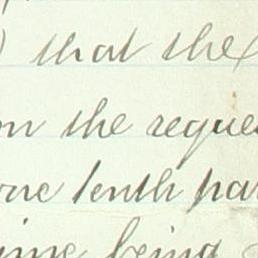 ) that the
on the reque
one tenth par
ime being